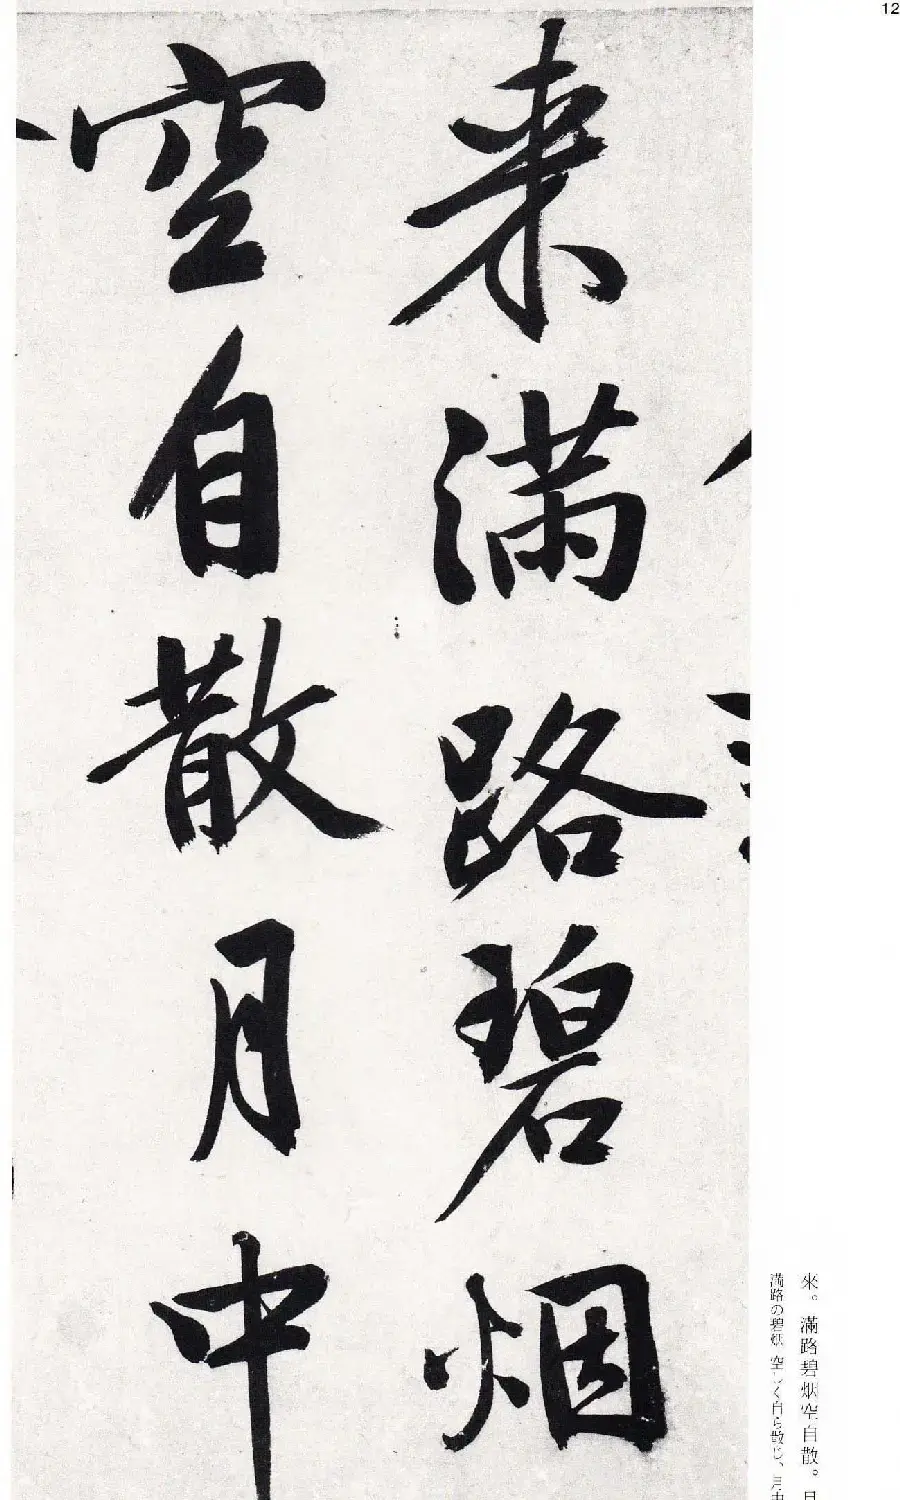 12
来満路碧烟
空自散月中
來。滿路碧烟空自散。月
満路の碧烟 空しく自ら散じ、月中